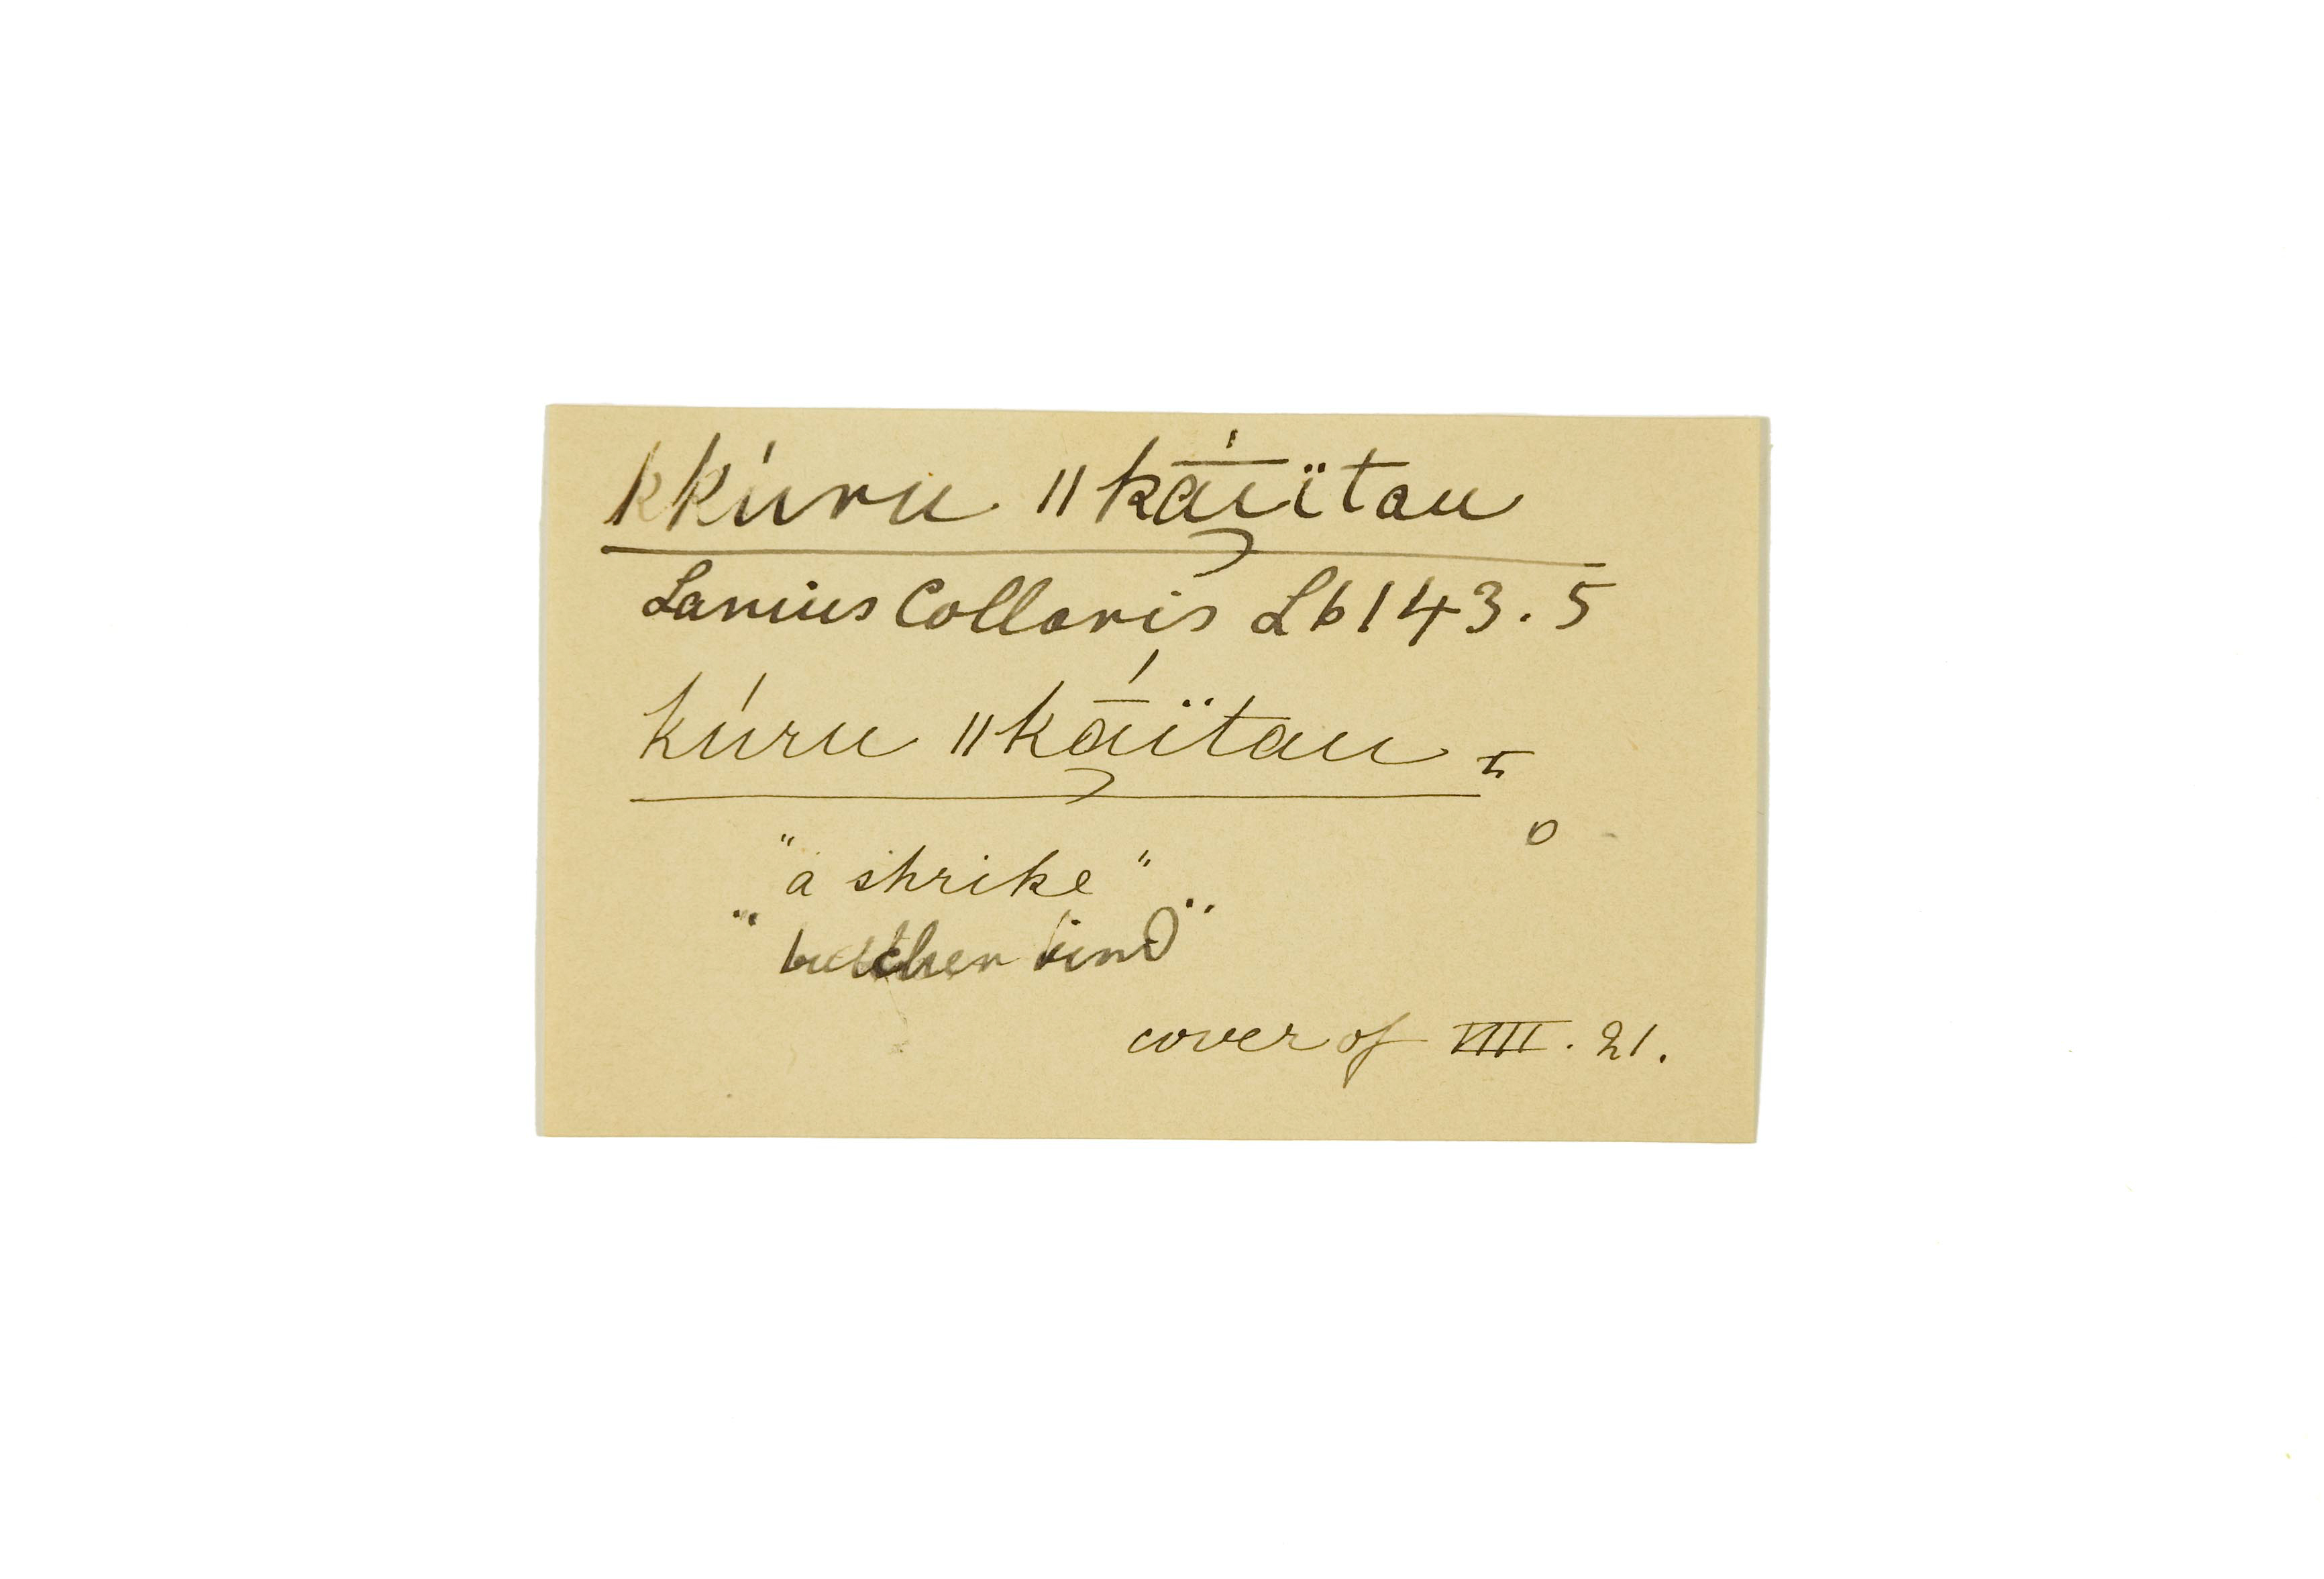 kkúru ǁkā́u̯ïtau
Lanius Collaris Lb 143.5
kúru ǁkā̯́ïtau =
o
"a shrike"
"butcher bird"
cover of VIII. 21.